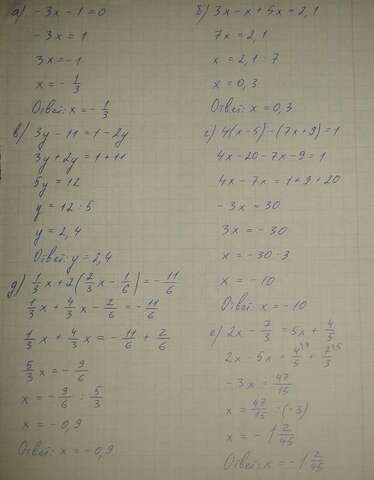 а) -3x - 1 = 0
-3x = 1
3x = -1
x = - 1/3
Ответ: x = - 1/3
б) 3x - x + 4x = 2,1
7x = 2,1
x = 2,1 : 7
x = 0,3
Ответ: x = 0,3
в) 3y - 11 = 1 - 2y
3y + 2y = 1 + 11
5y = 12
y = 12 : 5
y = 2,4
Ответ: y = 2,4
г) 4(x - 5) - (7x + 9) = 1
4x - 20 - 7x - 9 = 1
4x - 7x = 1 + 9 + 20
-3x = 30
3x = -30
x = -30 : 3
x = -10
Ответ: x = -10
д) 1/3 x + 2(2/3 x - 1/6) = - 11/6
1/3 x + 4/3 x - 2/6 = - 11/6
1/3 x + 4/3 x = - 11/6 + 2/6
5/3 x = - 9/6
x = - 9/6 : 5/3
x = -0,9
Ответ: x = -0,9
е) 2x - 7/3 = 5x + 4/5
2x - 5x = 4/5 \3 + 7/3 \5
-3x = 47/15
x = 47/15 : (-3)
x = -1 2/45
Ответ: x = -1 2/45